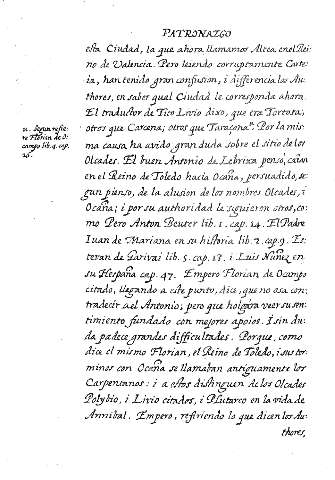 PATRONAZGO
esta Ciudad, la que ahora llamamos Altea en el Rei-
no de Valencia. Pero leiendo corruptamente Carte-
ia, han tenido gran confusion, i differencia los Au-
thores, en saber qual Ciudad le corresponda ahora.
El traductor de Tito Livio dixo, que era Tortosa;
otros que Carcena; otros que Taraçona. Por la mis-
ma causa, ha avido gran duda sobre el sitio de los
Olcades. El buen Antonio de Lebrixa penso, caian
en el Reino de Toledo hacia Ocaña, persuadido, se-
gun pienso, de la alusion de los nombres Olcades, i
Ocaña; i por su authoridad le siguieron otros, co-
mo Pero Anton Beuter lib. 1. cap. 14. El Padre
Iuan de Mariana en su historia lib. 2. cap. 9. Es-
tevan de Garivai lib. 5. cap. 13. i Luis Nuñez en
su Hespaña cap. 47. Empero Florian de Ocampo
citado, llegando a este punto, dice, que no osa con-
tradecir a el Antonio; pero que holgara veer su sen-
timiento fundado con mejores apoios. I sin du-
da padece grandes difficultades. Porque, como
dice el mismo Florian, el Reino de Toledo, i sus ter-
minos con Ocaña se llamaban antiguamente los
Carpentanos: i a estos distinguen de los Olcades
Polybio, i Livio citados, i Plutarco en la vida de
Annibal. Empero, refiriendo lo que dicen los Au-
thores,
21. Segun refie-
re Florian de O-
campo lib. 4. cap.